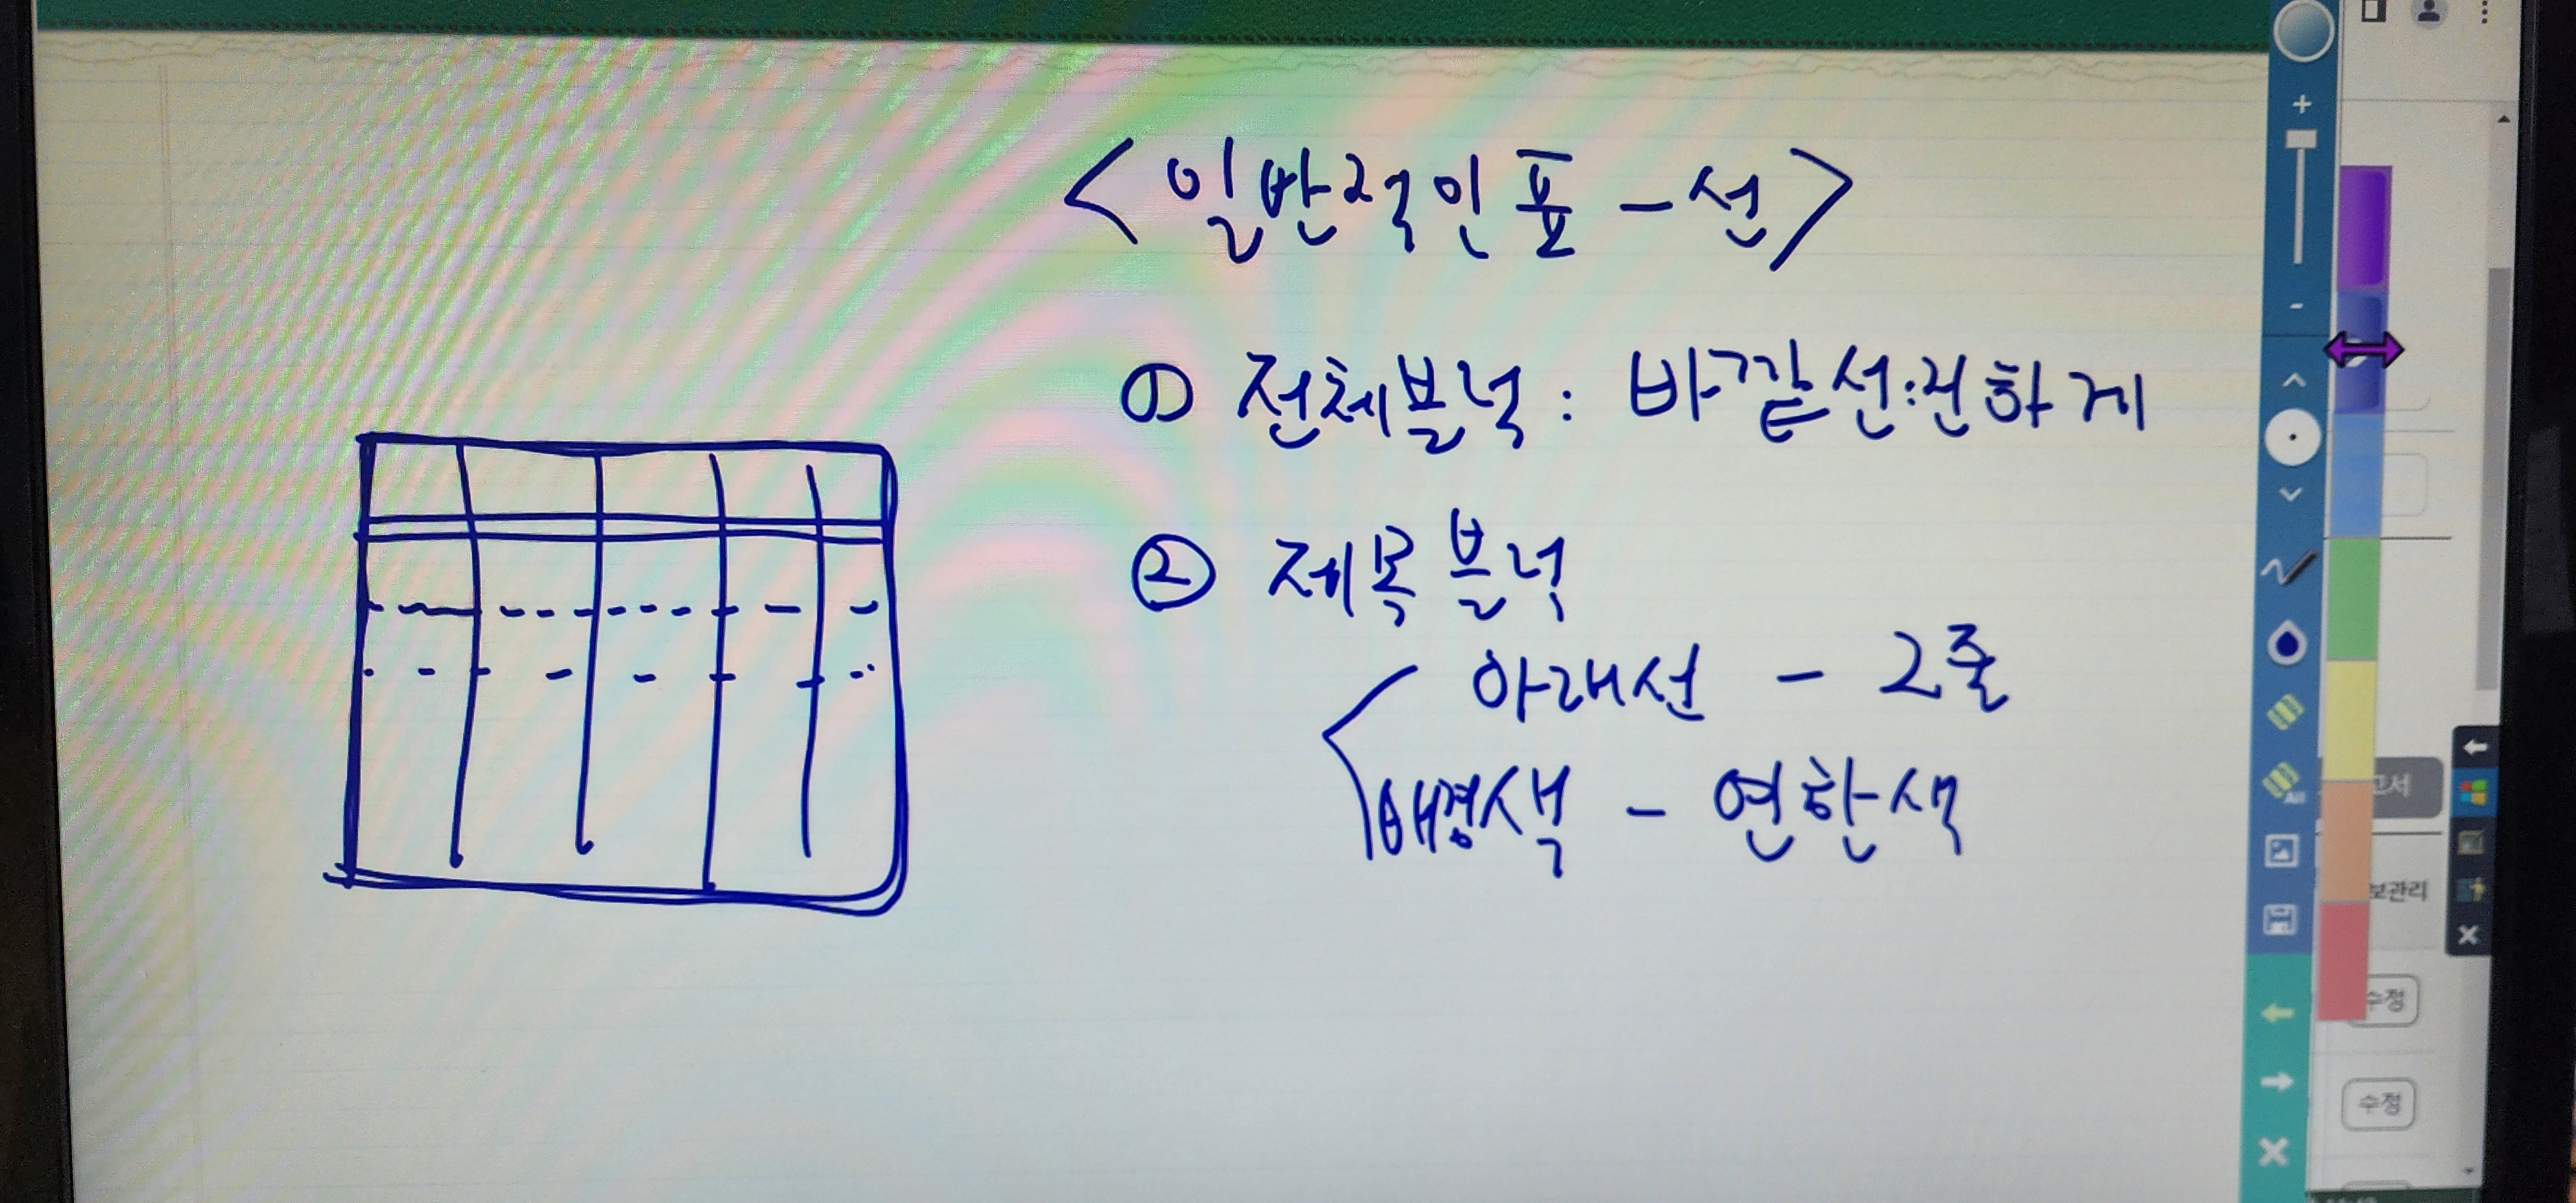 <일반적인 표 - 선>
① 전체블럭 : 바깥선:진하게
② 제목블럭
아래선 - 2줄
배경색 - 연한색
고서
보관리
수정
수정
All